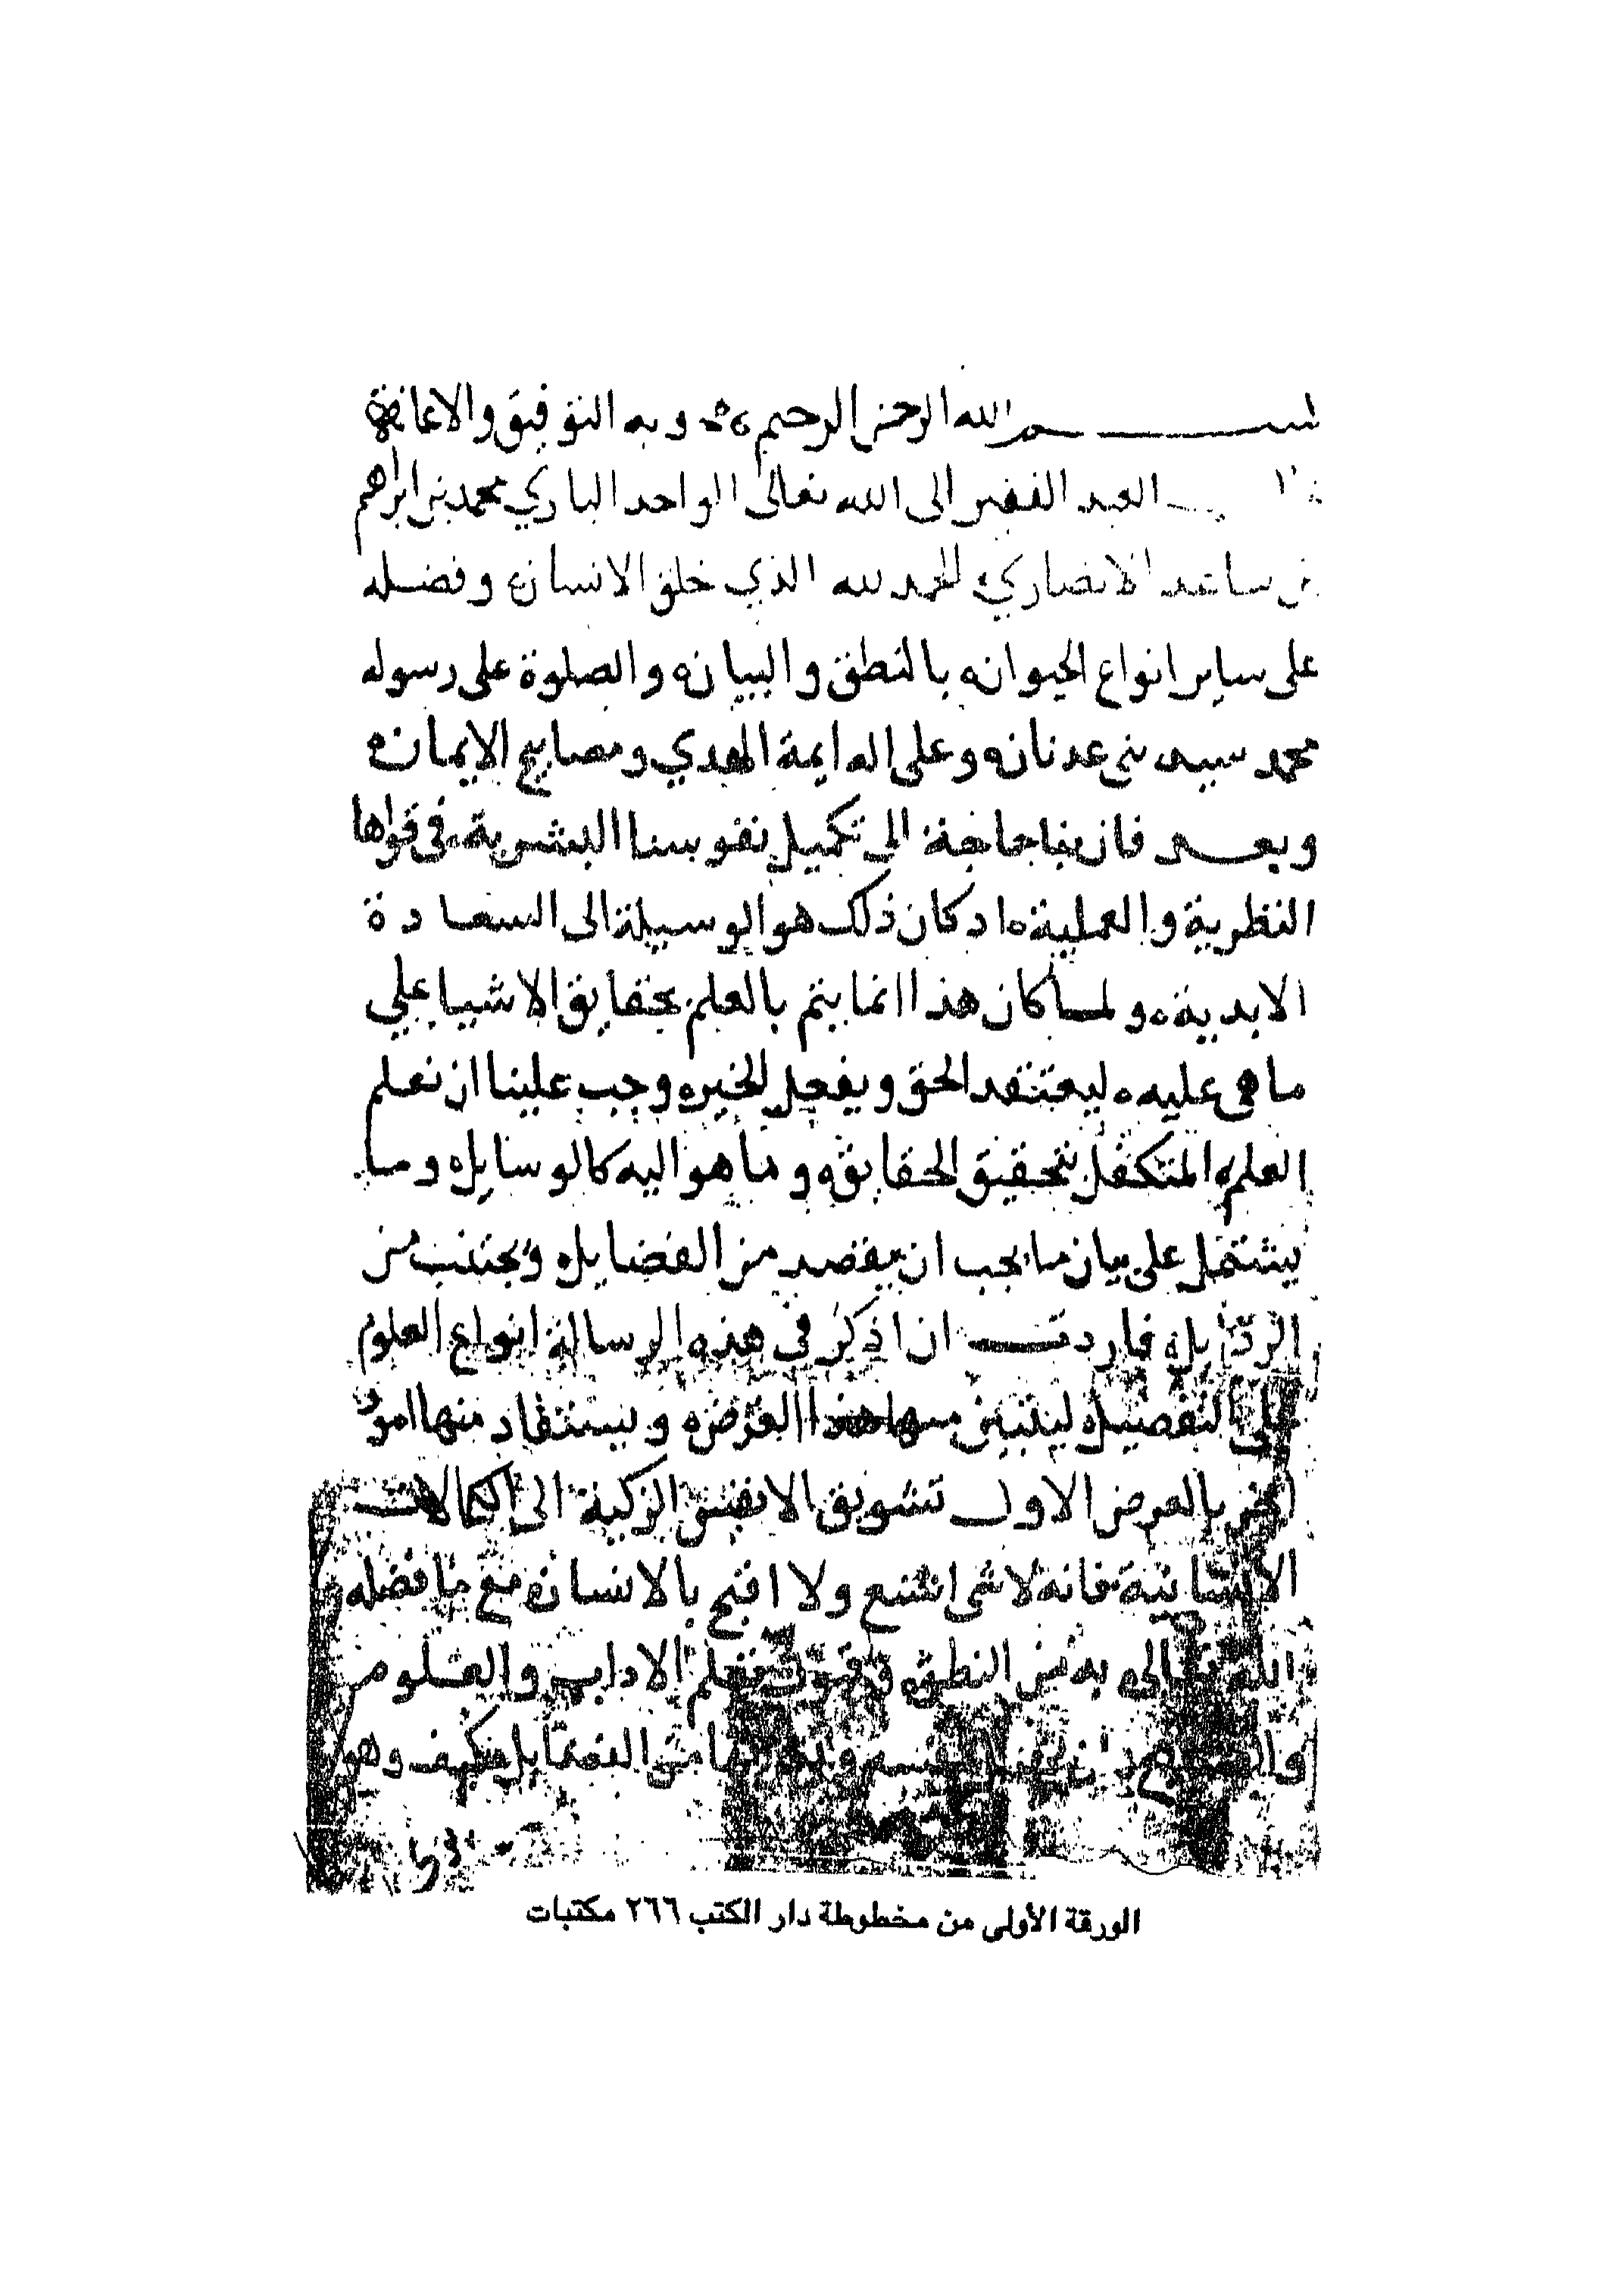 بسم الله الرحمن الرحيم وبه التوفيق والاعانة
العبد الفقير الى الله تعالى الواحد الباري محمد بن ابراهيم
بن ساعد الانصاري الحمد لله الذي خلق الانسان وفضله
على ساير انواع الحيوان بالنطق والبيان والصلوة على رسوله
محمد سيد بني عدنان وعلى اله ايمة الهدي ومصابيح الايمان
وبعد فان بنا حاجة الى تكميل نفوسنا البشرية في قواها
النظرية والعملية اد كان ذلك هو الوسيلة الى السعادة
الابدية ولما كان هذا انما يتم بالعلم بحقايق الاشيا علي
ما هى عليه ليعتقد الحق ويفعل الخير وجب علينا ان نعلم
العلم المتكفل بتحقيق الحقايق وما هو اليه كالوسايل وما
يشتمل على بيان ما يجب ان يقصد من الفضايل ويجتنب من
الرذايل فاردت ان اذكر في هذه الرسالة انواع العلوم
على التفصيل ليتبين منها هذا الغرض ويستفاد منها امور
اخر بالعرض الاول تشويق الانفس الزكية الى الكمالات
الانسانية فانه لا شى اشنع ولا اقبح بالانسان مع ما فضله
الله تعالى به من النطق وقبول تعلم الاداب والعلوم
نفسه من الفضايل كيف وهو
الورقة الأولى من مخطوطة دار الكتب ٢٦٦ مكتبات